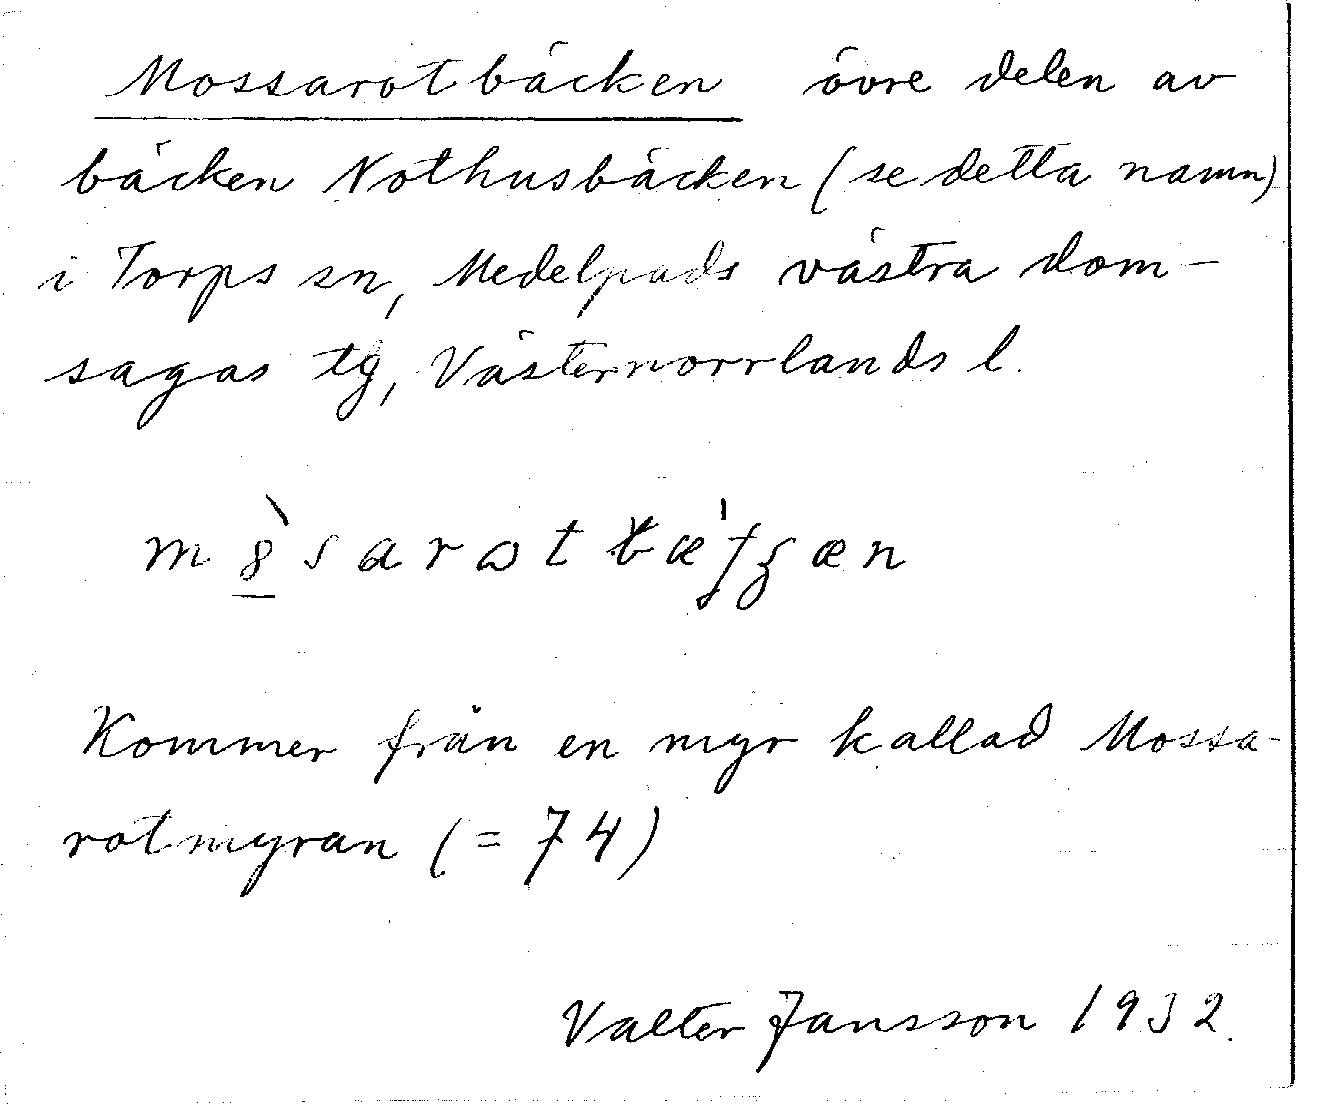 Mossarotbäcken övre delen av
bäcken Nothusbäcken (se detta namn)
i Torps sn, Medelpads västra dom-
sagas tg, Västernorrlands l.
Kommer från en myr kallad Mossa-
rotmyran (= 74)
Valter Jansson 1932.